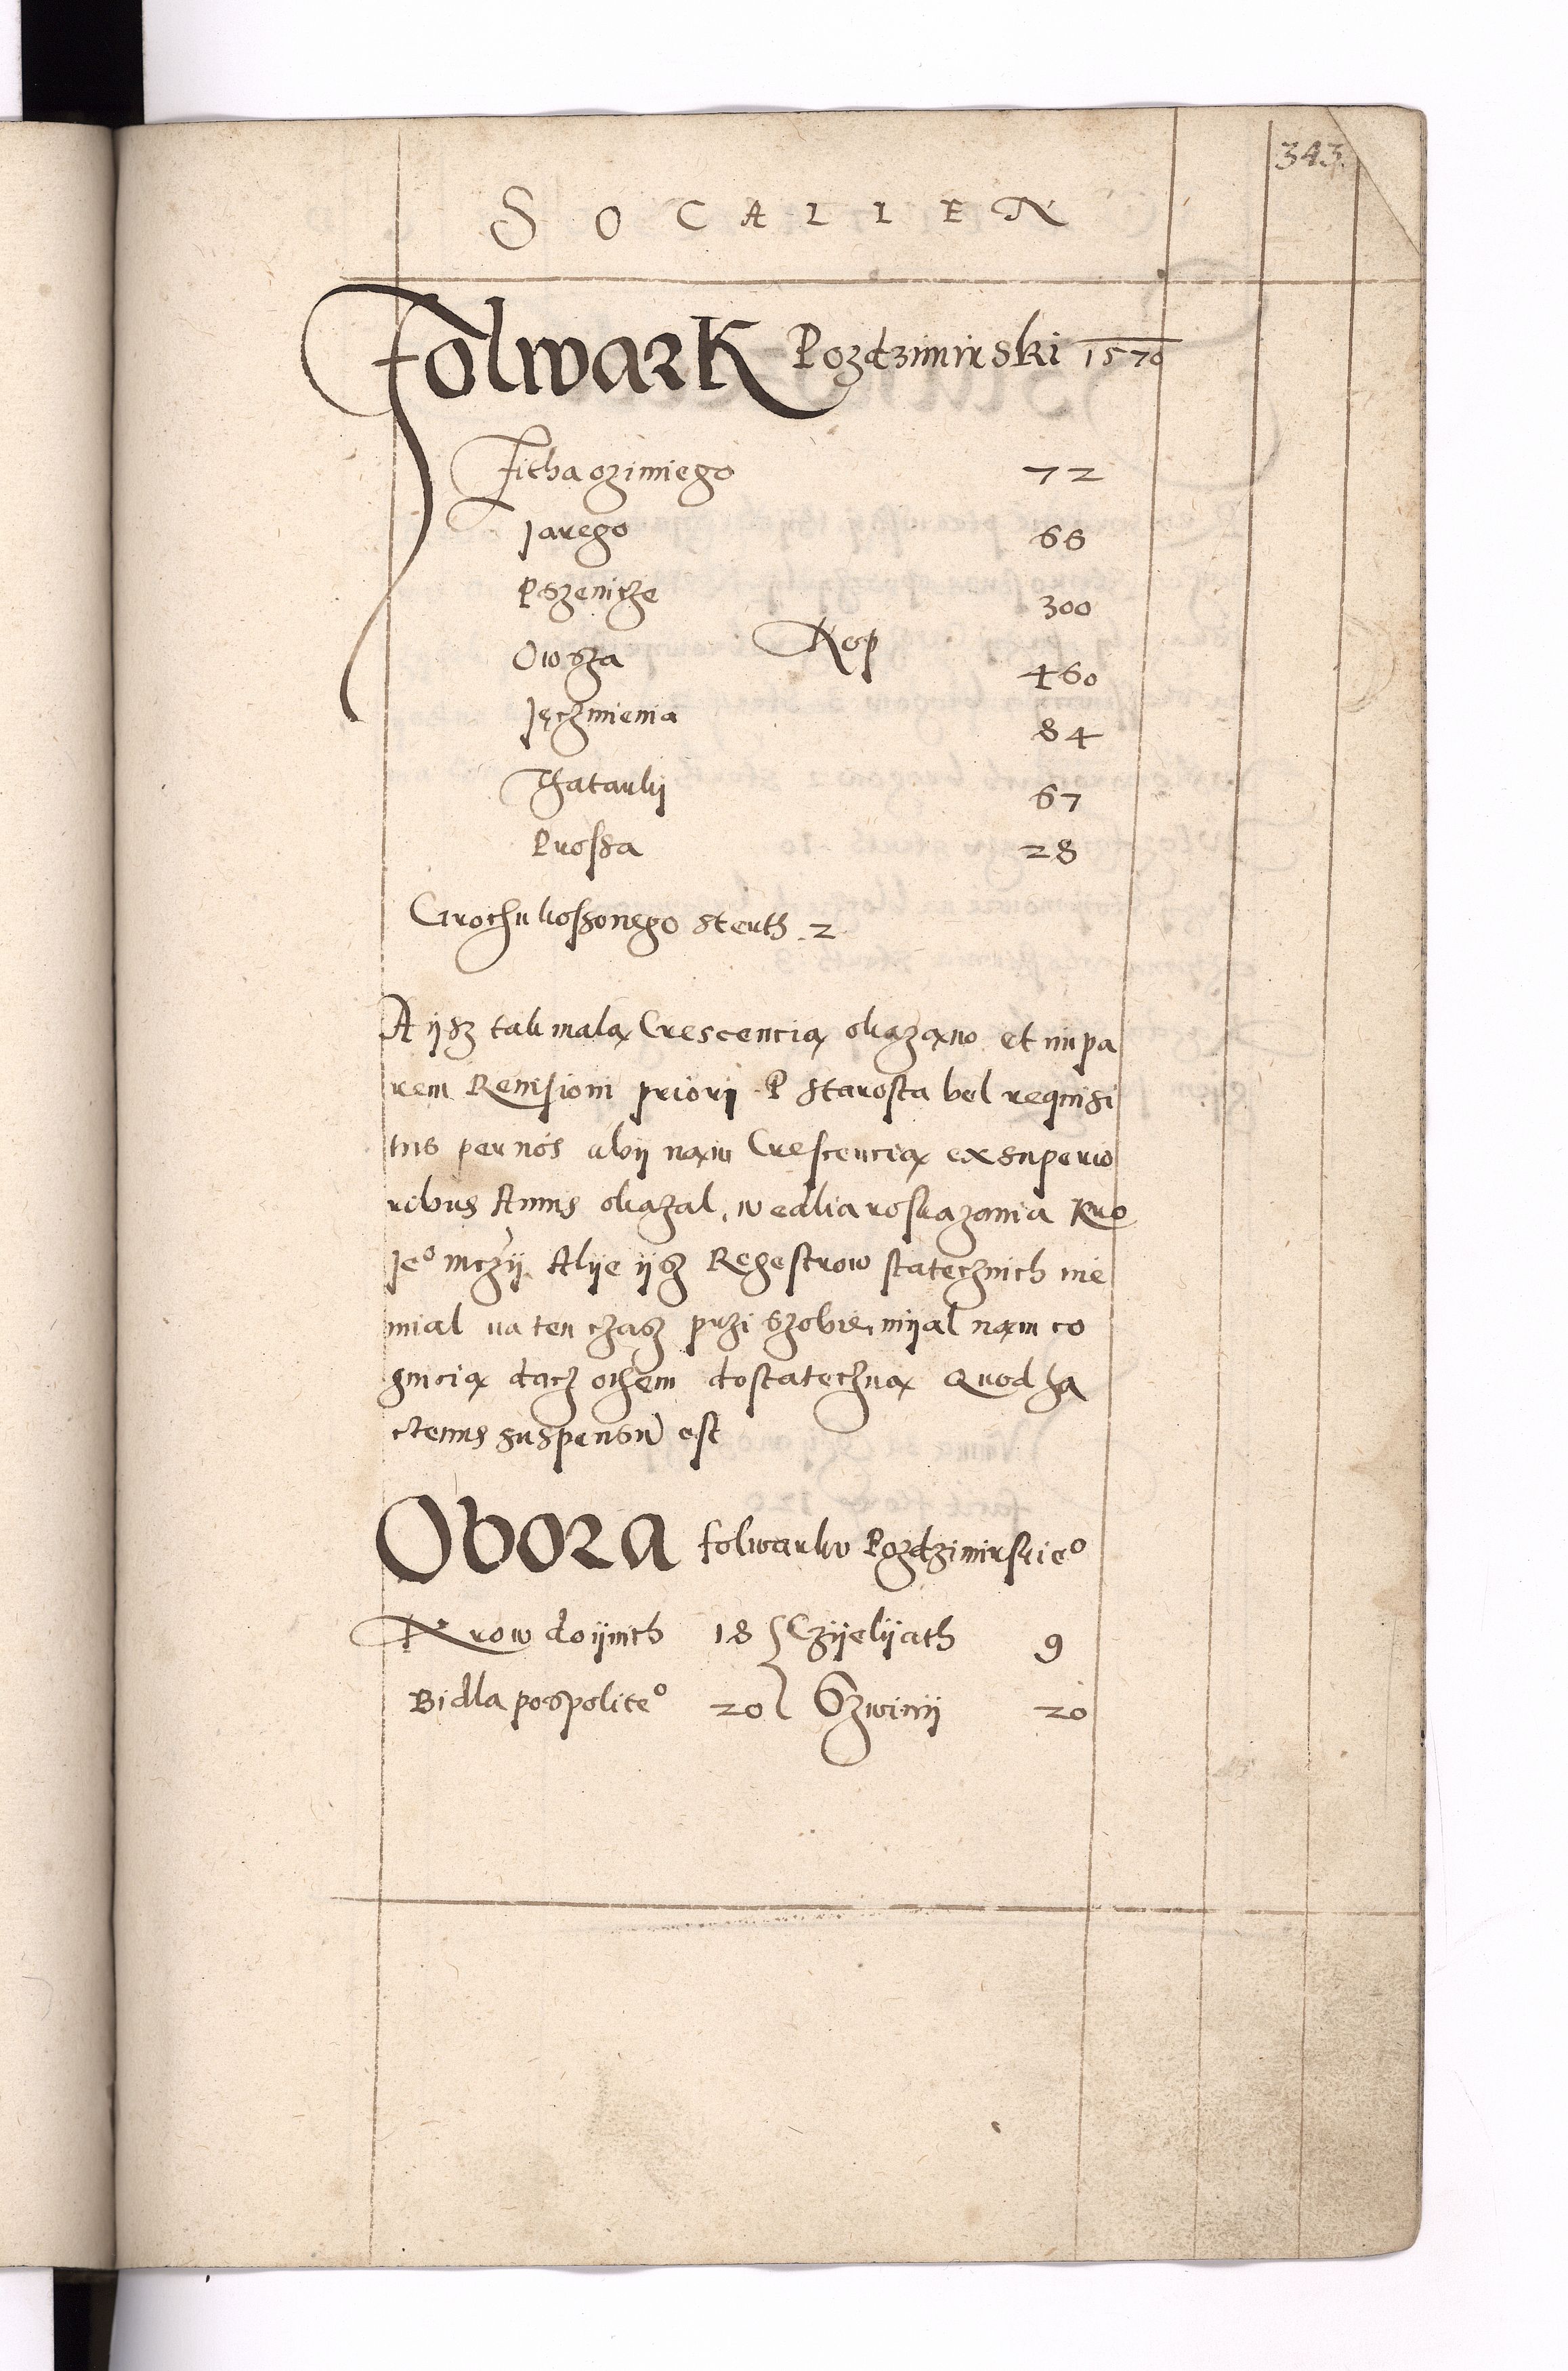 343.
SOCALIEN
Folwark Pozdzimirski 1570
Zitha ozimiego 72
Jarego 66
Pszenicze 300
Owsza Kop 460
Jęczmienia 84
Thatarki 67
Prossa 28
Grochu kossonego sterth 2
A ijsz tak malą Crescencią okazano et impa
rem Revisioni priori P Starosta bel requisi
tus per nos abij nam Crescencią ex superio
ribus Annis okazal, wedlia roskazania Kro
Je° mczij Alije ijsz Regestrow statecznich nie
mial na ten czasz przi szobie, mijal nam co
gnicią dacz othem dostateczną Quod ha
ctenus suspensu est
Obora folwarku Pozdzimirskie°
Krow doijnich 18 Czijelijath 9
Bidla pospolite° 20 Szwinij 20